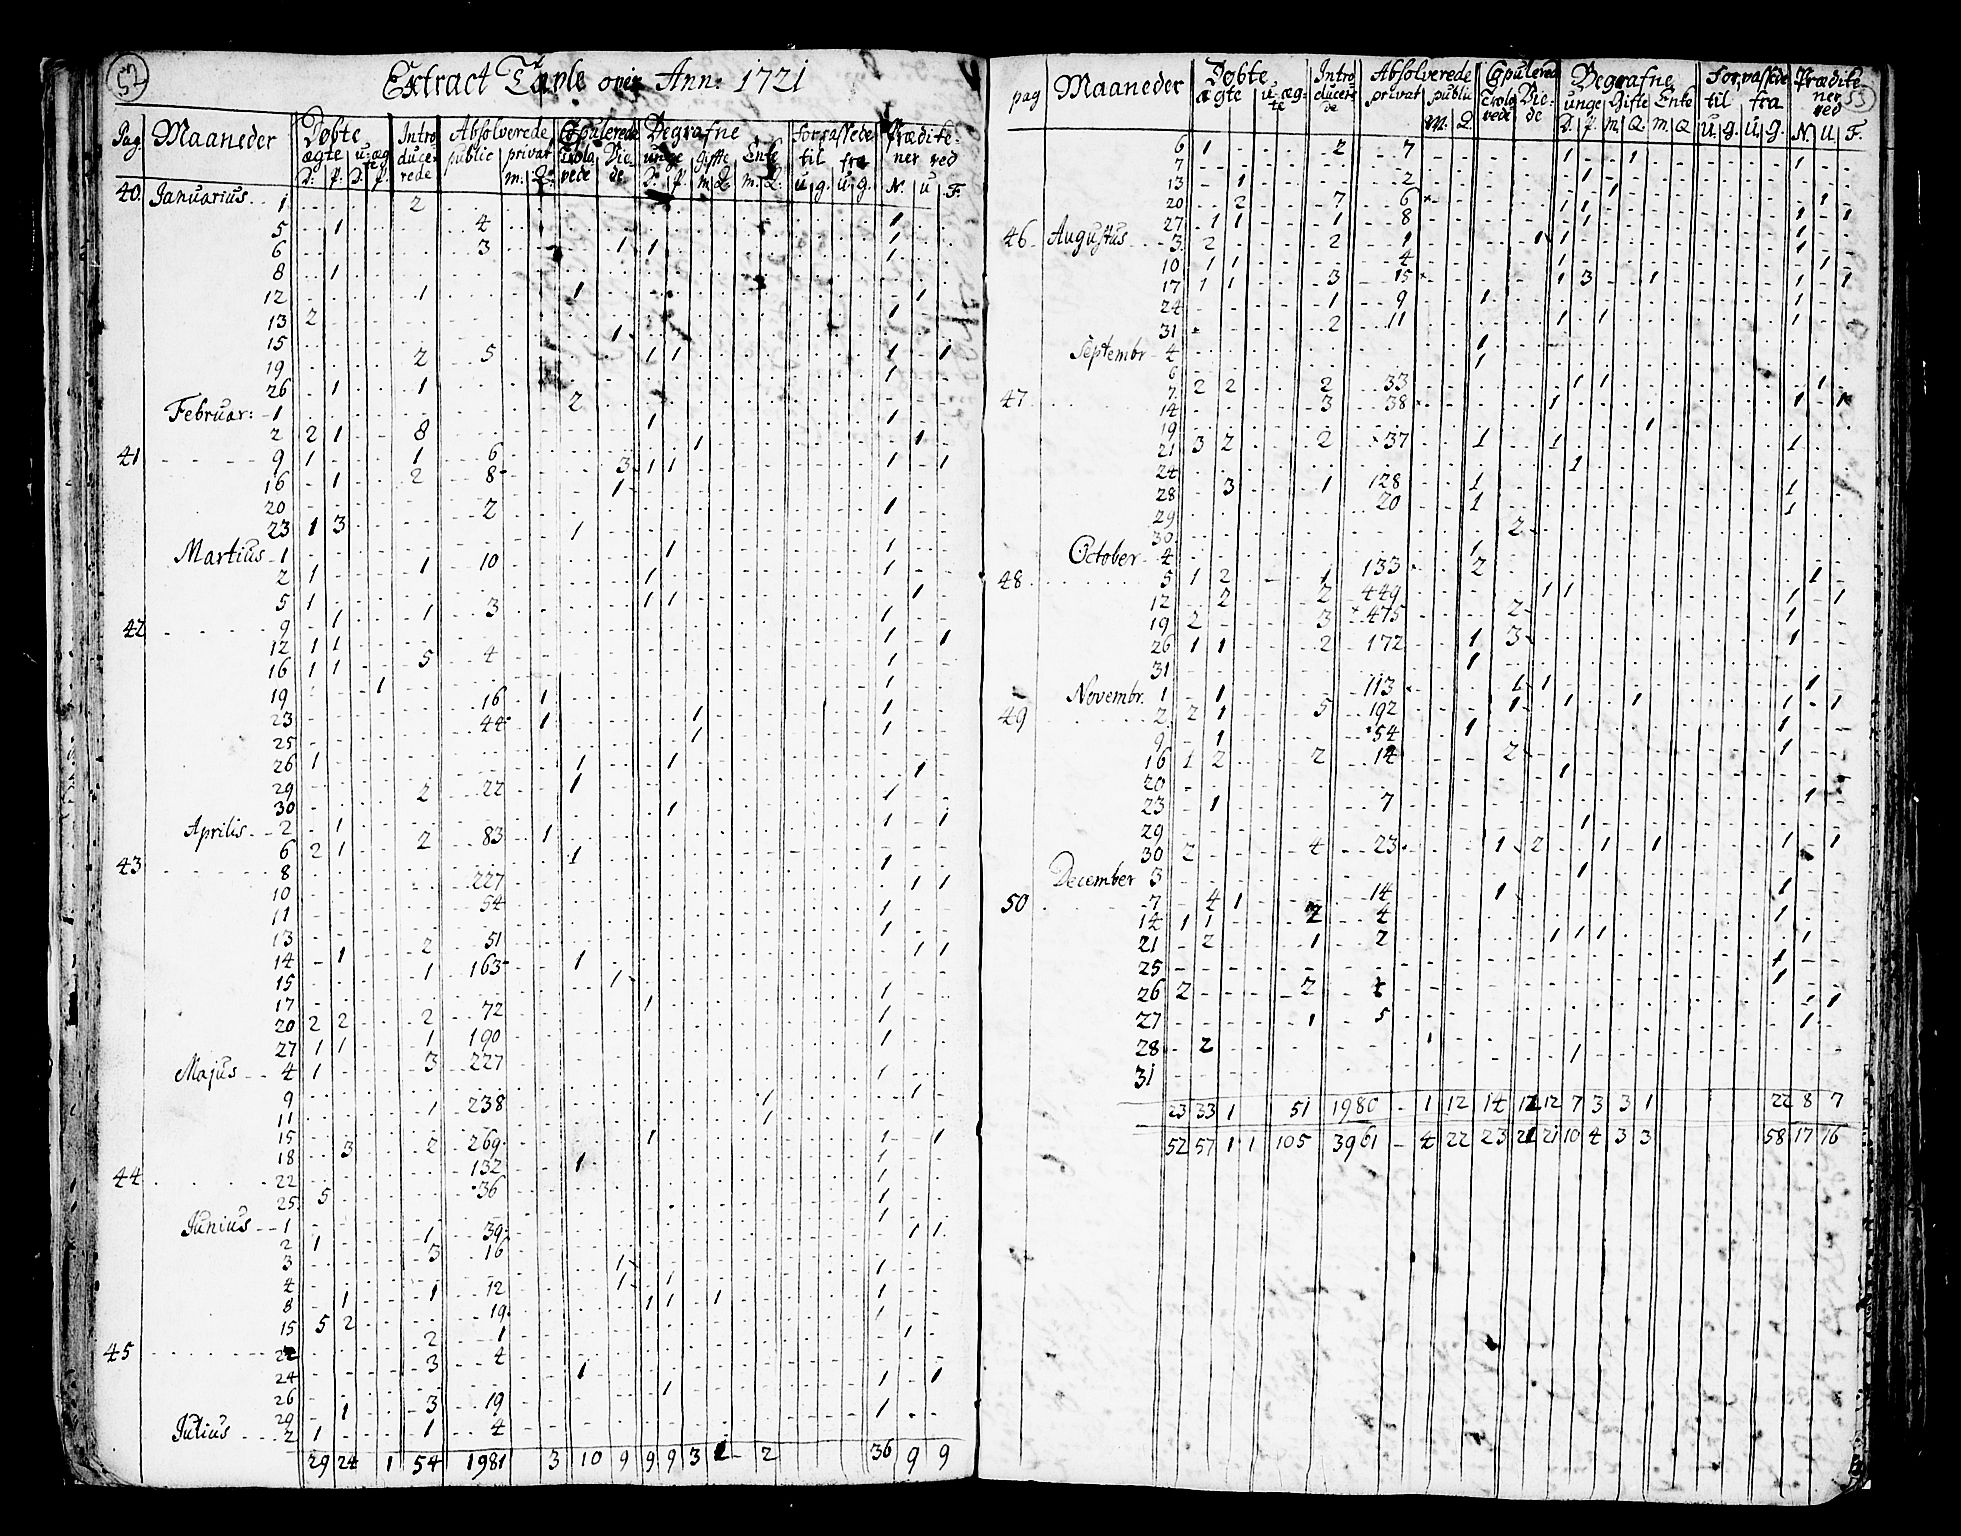 52
Extract Tavle over Ann: 1721
Pag Maaneder Døbte Intro Absolverede Copulerede Begrafne forrassede Prædike-
ægte u-æg te ducer public privat Trolo Vie- unge giffte Enke til fra ner ved
D. P. D. P. rede m. Q. vede de D. P. m. Q. m. Q. u. g. u. g. N. u F.
40. Januarius 1 2
5 1 4 1
6 3 1 1 1
8 1
12 1 1 1
13 2 1
15 1
19 2 5 1 1 1 1
26 1 1 1
Februar: 1 2
2 2 1 8 1 1
41 9 1 1 6 1 1
16 1 2 8 3 1 1 1 1
20 2 1
23 1 3 1 1
Martius 1 1
2 1 1 10 1 1
5 1 1 1
42 9 1 1 3 1 1 1
12 1 1 1
16 1 1 5 4 1
19 1 1
23 16 1 1
25 44 1 1 1
26 1 1
29 2 22 1 1 1
30 1 1
Aprilis 2 1 1
6 2 1 2 83 1 1 1
43 8 1
10 227 1
11 54 1 1
13 51 1
14 1 2 1
15 1 163 1 1 1
17 1
20 2 2 2 72 1 1
27 1 1 1 190 1
Majus 4 1 3 227 1
9 1
11 1 238 1 1
15 1
18 3 2 269 1 1 1
44 22 132 1 1
25 5 36 1
Junius 1 1
2 1 1 39 1 1
3 3 16
4 1 1
8 1 1 12 1 1 1
15 5 2 19 1 1 1 1
45 22 2 1 1
24 3 4 1
26 1 1 1
29 1 3 19 1
Julius 2 1 1 4
29 24 1 54 1981 3 10 9 9 9 3 2 36 9 9
53
pag Maaneder Døbte Intro Absolverede Copulered Begrafne forrassede Prædike
ægte u-æg- te ducere de privat public Trolo vede Vie- de unge Gifte Enke til fra ner ved
M. Q. D. P. m. Q. m. Q. u. g. u. g. N. U. F.
6 1 2 7 1 1 1
7 1
13 1 2 1
20 2 7 6 1 1 1
27 1 1 1 8 1 1 1
46 Augustus 3 2 2 1 1 1 1
10 1 1 4 1 1
17 1 1 3 15 1 3 1 1 1
24 1 9 1 1
31 2 11 1 1 1
Septembr 4 1
6 1
47 7 2 2 2 33 1 1 1
14 3 38 1 1 1
19 1
21 3 2 2 37 1 1 1
24 1
28 3 1 128 1 1
29 20 1 1
30 2
October 4 1
48 5 1 2 1 133 2 1
12 2 2 449 1 1 1 1
19 2 3 475 2 1
26 1 1 2 172 1 3 1
31 1
Novembr. 1 1 113 1 1 1
49 2 2 1 5 192 1 1 1 1 1
9 1 54 1 1
16 1 2 2 14 2 1
20 1
23 1 7 1
29 1
30 2 4 23 1 2 1 1 1 1
December 3 1
50 7 4 1 14 1 1
14 1 1 2 4 1
21 2 1 2 1 1 1 1
25 1
26 2 2 1
27 1 5 1 1
28 2 1 1
31 1
23 33 1 51 1980 - 1 12 14 12 12 7 3 3 1 22 8 7
52 57 1 1 105 3961 - 4 22 23 21 21 10 4 3 3 58 17 16